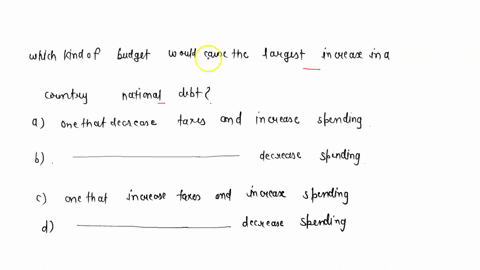 which kind of budget would cause the largest increase in a
country national debt?
a) one that decrease taxes and increase spending
b) ———————— decrease spending
c) one that increase taxes and increase spending
d) ———————— decrease spending